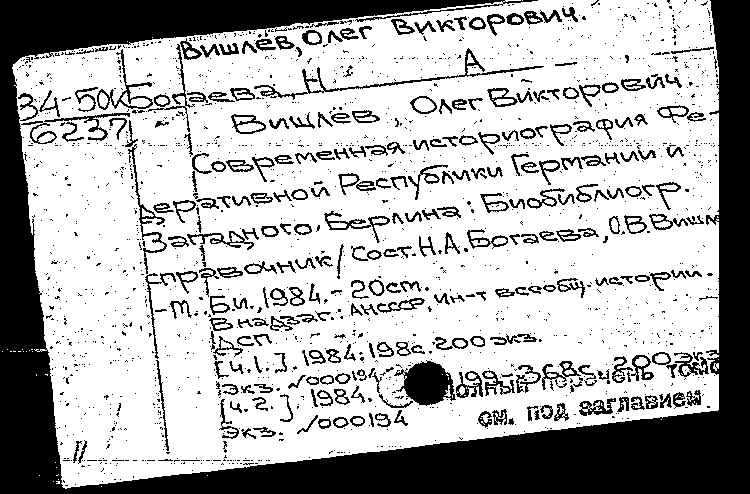 Вишлёв, Олег Викторович.
Богаева, Н А
34-50К
6237
Вишлёв, Олег Викторович.
Современная историография Фе-
деративной Республики Германии и
Западного Берлина: Биобиблиогр.
справочник / Сост. Н.А.Богаева, О.В.Вишл
-М.: Б.и., 1984.- 20см.
В надзаг.: АНСССР, Ин-т всеобщ. истории.
ДСП
[ч.1.]. 1984. 198с. 200 экз.
экз. √000194
[ч.2.]. 1984. 199-368с. 200 экз
экз. √000194
Полный перечень томо
см. под заглавием